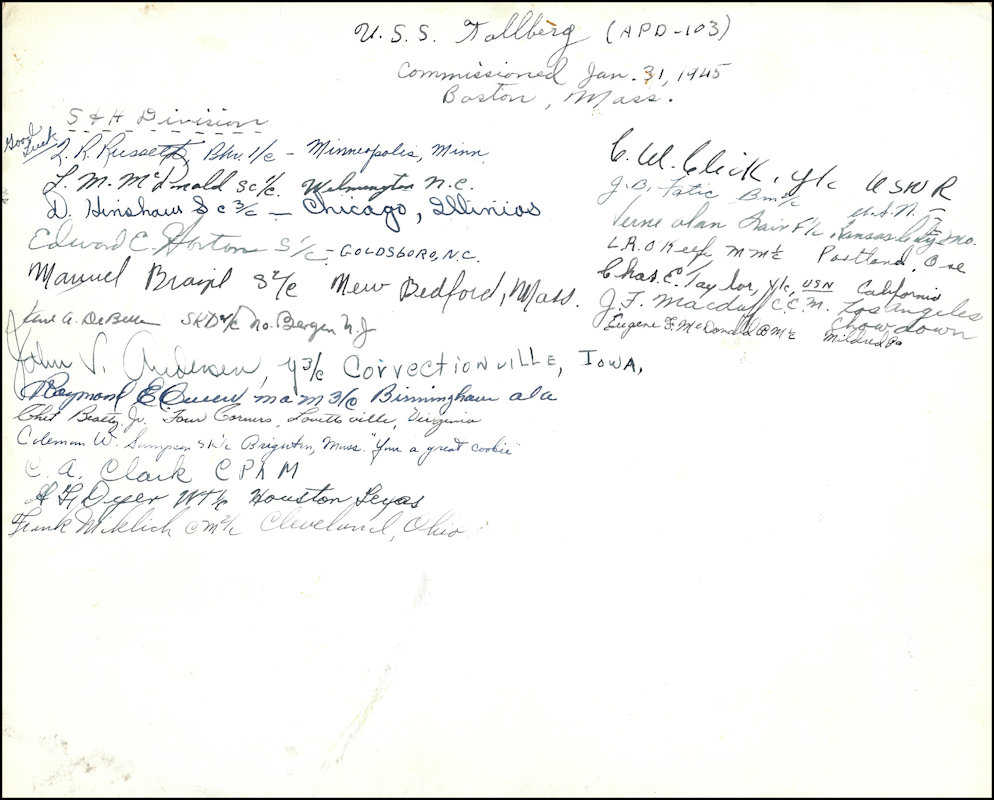 U.S.S. Tollberg (APD-103)
Commissioned Jan. 31, 1945
Boston, Mass.
S & H Division
Good Luck
L. R. Russeth, Bkr. 1/c - Minneapolis, Minn.
L. M. McDonald SC 1/c. Wilmington N.C.
D. Hinshaw SC 3/c - Chicago, Illinios
Edward E. Horton S 1/c - GOLDSBORO, N.C.
Manuel S 2/c New Bedford, Mass.
A. DeBellis SKD 2/c No. Bergen N.J
John V. Andersen, Y 3/c CORRECTIONVILLE, IOWA,
Raymond E Queen MaM 3/c Birmingham ala
Chet Beatty, Jr. Four Corners, Lovettsville, Virginia
Coleman W. Sampson SK 1/c Brighton, Mass. "You a great cookie"
C. A. Clark CPhM
H F Dyer WT 1/c Houston Texas
Frank Miklich CM 2/c Cleveland, Ohio
C. W. Click, Y1c USNR
J. B. Bm 1/c U.S.N.
Verne alan F 1/c, Kansas City, Mo.
L.R. O Keefe MM 2/c Portland, Ore
Chas. E. Taylor, Y1c, USN California
J. F. Macduff C.C.M. Los Angeles
Chowdown
Eugene F. McDonald BM 2/c Mildred Pa